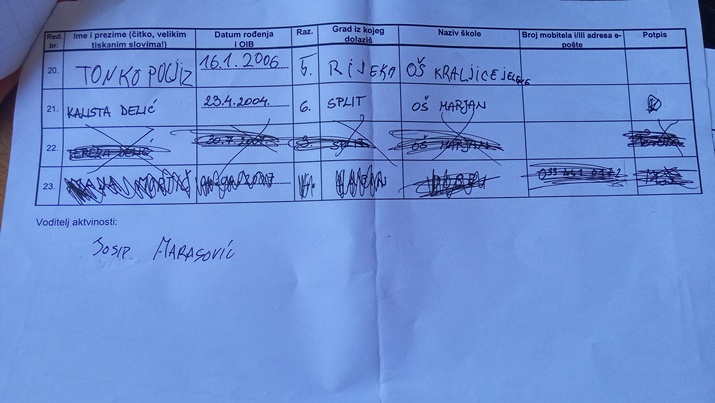 Red. br. Ime i prezime (čitko, velikim tiskanim slovima!) Datum rođenja i OIB Raz. Grad iz kojeg dolaziš Naziv škole Broj mobitela i/ili adresa e-pošte Potpis
20. TONKO POLJIZ 16.1.2006 5. RIJEKA OŠ KRALJICE JELENE
21. KALISTA DELIĆ 23.4.2004. 6. SPLIT OŠ MARJAN
22. OŠ MARJAN
23.
Voditelj aktvinosti:
JOSIP MARASOVIĆ